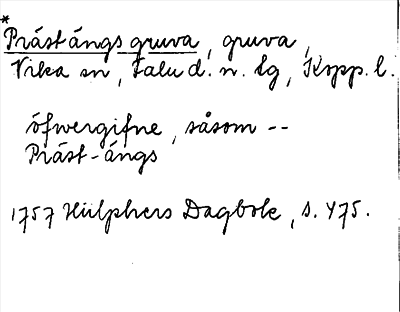 *
Prästängsgruva, gruva,
Vika sn, Falu d. n. lg, Kopp. l.
öfwergifne, såsom --
Präst-ängs
1757 Hülphers Dagbok, s. 475.